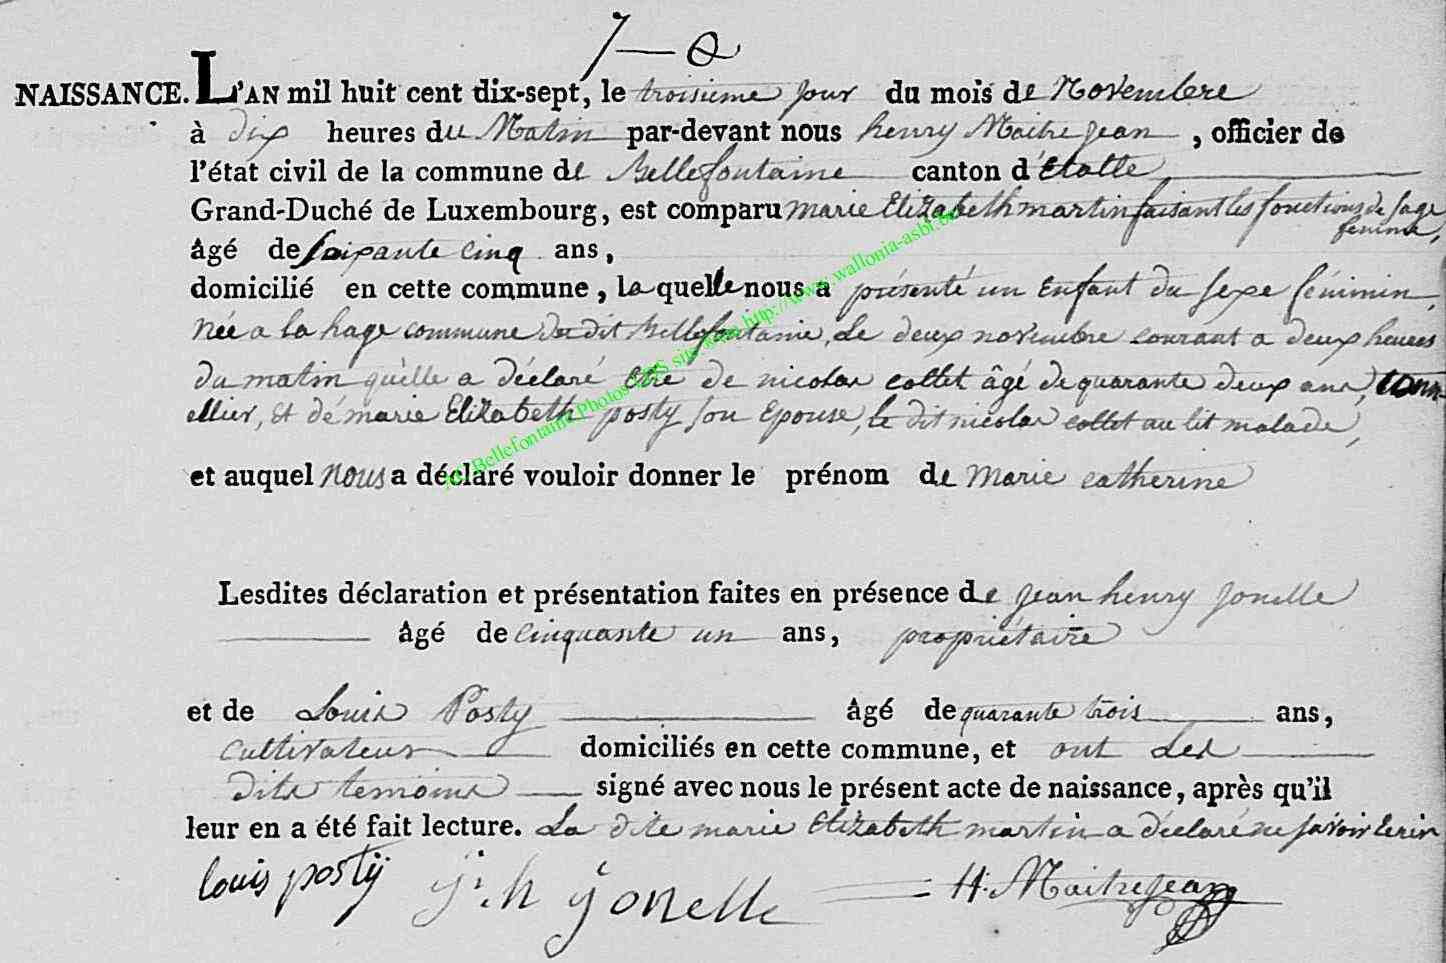 7
NAISSANCE. L'AN mil huit cent dix-sept, le troisieme jour du mois de Novembre
à dix heures du Matin par-devant nous henry Maitrejean, officier de
l'état civil de la commune de Bellefontaine canton d'étalle
Grand-Duché de Luxembourg, est comparu marie Elizabeth martin faisant les fonctions de sage
femme,
âgé de soixante cinq ans,
domicilié en cette commune, la quelle nous a présenté un Enfant du sexe féminin,
née a la hage commune du dit Bellefontaine, le deux novembre courant a deux heures
du matin qu'elle a déclaré etre de nicolas collet âgé de quarante deux ans, tonn-
ellier, et de marie Elizabeth posty son Epouse, le dit nicolas collet au lit malade,
et auquel nous a déclaré vouloir donner le prénom de Marie catherine
Lesdites déclaration et présentation faites en présence de jean henry jonelle
âgé de cinquante un ans, propriétaire
et de Louis Posty âgé de quarante trois ans,
cultivateur domiciliés en cette commune, et ont Les
dits temoins signé avec nous le présent acte de naissance, après qu'il
leur en a été fait lecture. La dite marie Elizabeth martin a déclaré ne savoir Ecrir
louis postÿ j. h jonelle H. Maitrejean
Bellefontaine Photos site http://www.wallonia-asbl.be